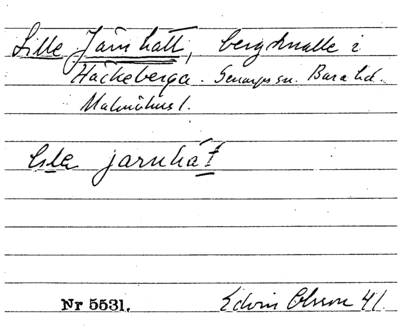 Lille Järnhatt, bergknalle i
Häckeberga. Genarps sn. Bara hd.
Malmöhus l.
lila jarnhat
Nr 5531. Edvin Olsson 41.